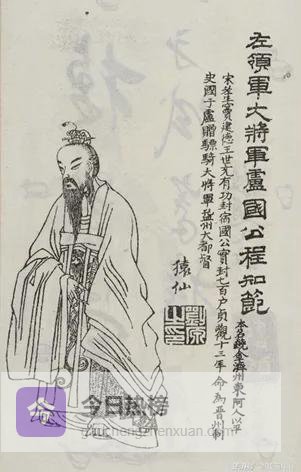 左領軍大將軍盧國公程知節
本名齩金濟州東阿人以平
宋老生竇建德王世充有功封宿國公實封七百户貞觀十三年命為晉州刺
史國于盧贈驃騎大將軍益州大都督
猿仙
今日热榜